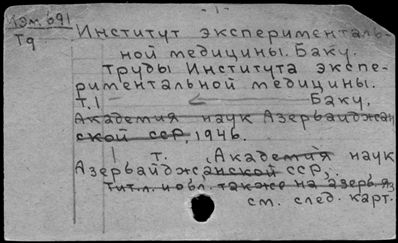 - 1 -
Изм. 691
Т9
Институт эксперименталь-
ной медицины. Баку.
Труды Института экспе-
риментальной медицины.
Т.1 — Баку.
Академия наук Азербайджан
ской ССР, 1946.
1 т. (Академия наук
Азербайджанской ССР,
Тит. л. и обл. также на азерб. яз
см. след. карт.